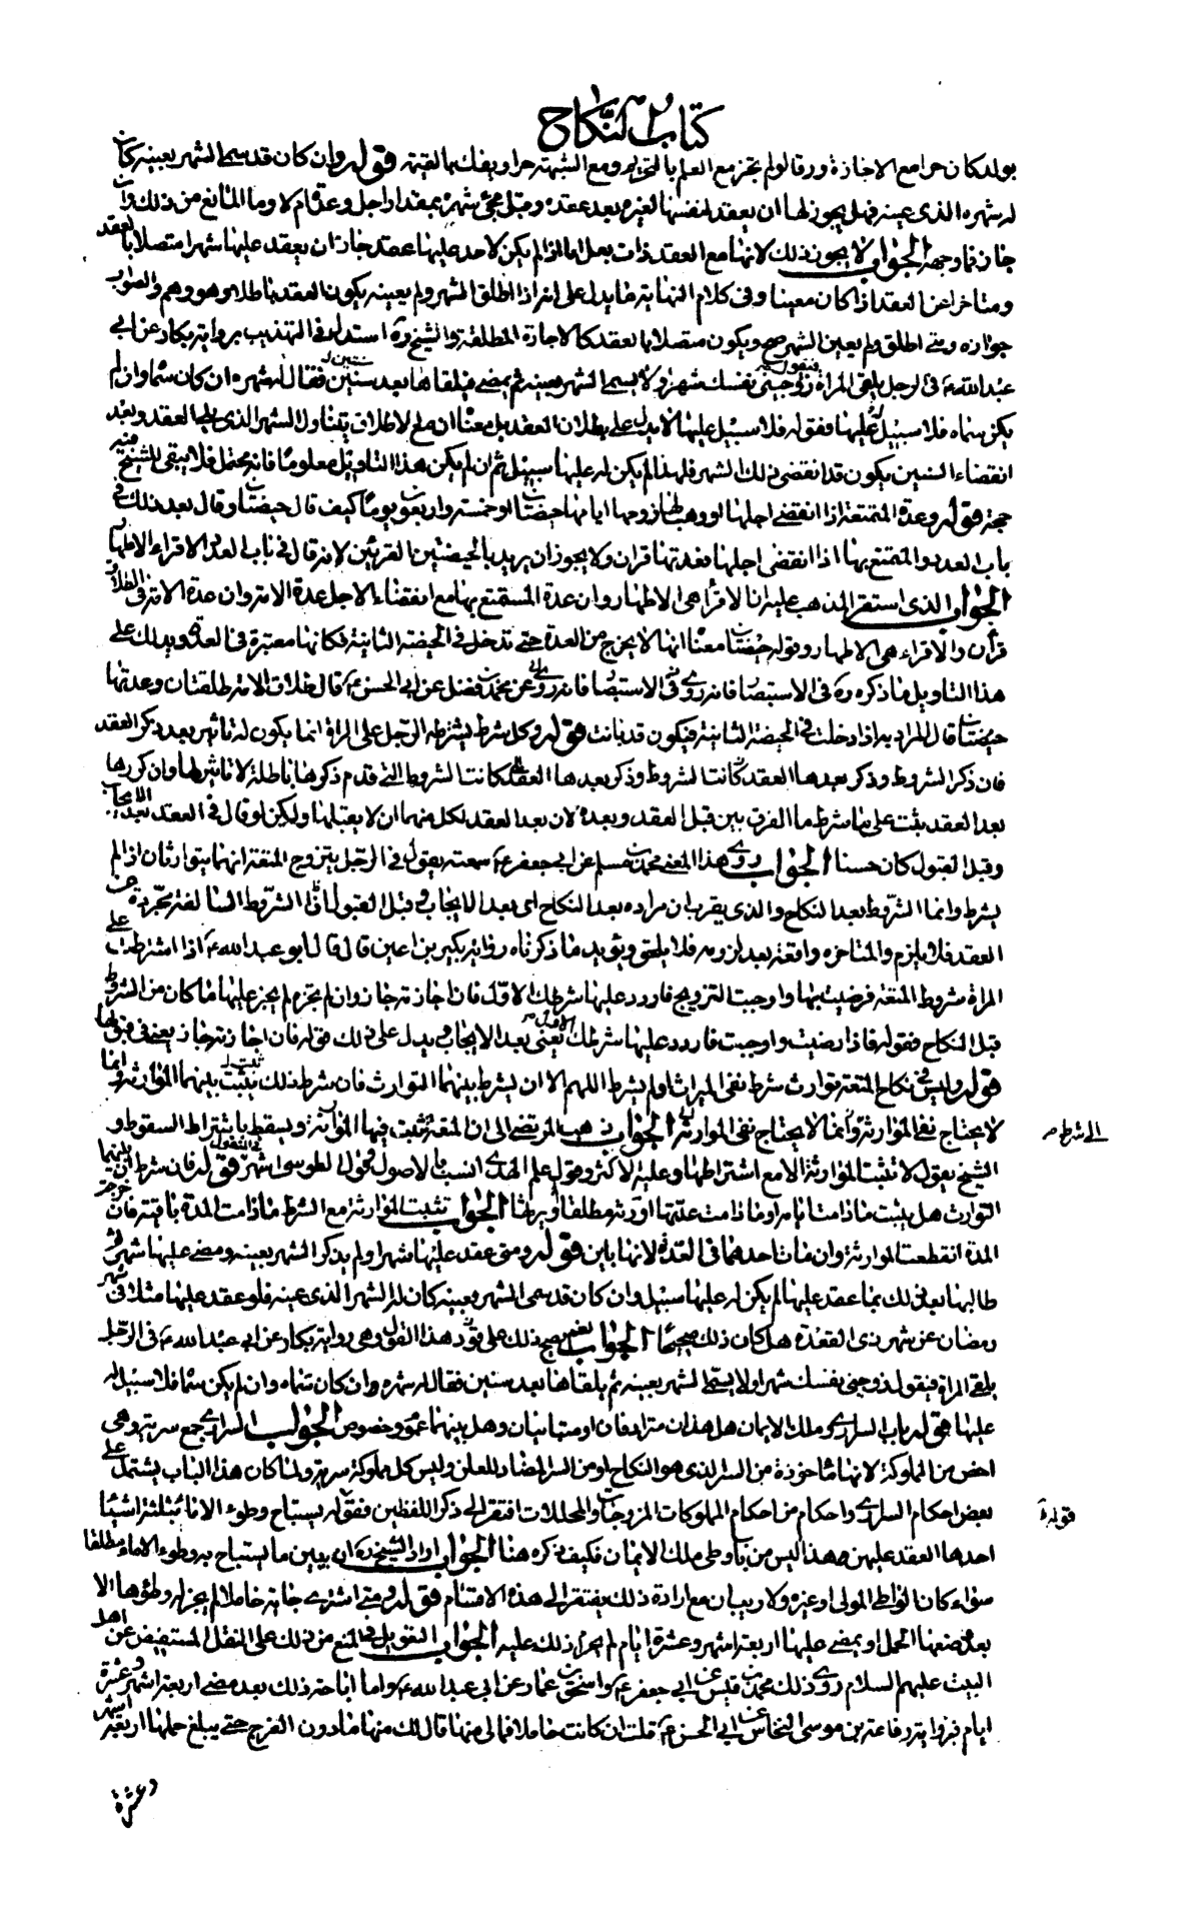 كتاب النكاح
بولد كان حرا مع الاجازة ورقا لو لم تجز مع العلم بالتحريم ومع الشبهة حر او يفك بالقيمة قوله وان كان قد سمى الشهر بعينه كان
له شهره الذي عينه فهل يجوز لها ان يعقد لنفسها لغيره بعد عقده وقبل مجئ شهره بمقدار اجل وعدة ام لا وما المانع من ذلك وان
جاز فما وجهه الجواب لا يجوز ذلك لانها مع العقد ذات بعل اما اذا لم يكن لاحد عليها عقد جاز ان يعقد عليها شهرا متصلا بالعقد
ومتاخرا عن العقد اذا كان معينا وفي كلام النهاية ما يدل على انه اذا اطلق الشهر ولم يعينه يكون العقد باطلا وهو وهم والصواب
جوازه ومتى اطلق ولم يعين الشهر صح ويكون متصلا بالعقد كالاجارة المطلقة والشيخ ره استدل في التهذيب برواية بكار عن ابي
عبد الله ع في الرجل يلقى المراة فيقول زوجيني نفسك شهرا ولا يسمى الشهر بعينه ثم يمضي فيلقاها بعد سنين فقال له شهره ان كان سماه وان لم
يكن سماه فلا سبيل له عليها فقوله فلا سبيل عليها لا يدل على بطلان العقد بل معناه ان مع الاطلاق يتناول الشهر الذي يلي العقد وبعد
انقضاء السنين يكون قد انقضى ذلك الشهر فلهذا لم يكن له عليها سبيل ثم ان لم يكن هذا التاويل معلوما فانه محتمل فلا يبقى للشيخ فيه
حجة قوله وعدة المتمتعة اذا انقضى اجلها او وهب لها زوجها ايامها حيضتان او خمسة واربعون يوما كيف قال حيضتان وقال بعد ذلك في
باب العدد والمتمتع بها اذا انقضى اجلها فعدتها قران ولا يجوز ان يريد بالحيضتين القرئين لانه قال في باب العدد الاقراء الاطهار
الجواب الذي استقر المذهب عليه ان الاقرأ هي الاطهار وان عدة المستمتع بها مع انقضاء الاجل عدة الامة وان عدة الامة في الطلاق
قرآن والاقراء هي الاطهار وقوله حيضتان معناه انها لا يخرج من العدة حتى تدخل في الحيضة الثانية فكانها معتبرة في العدة ويدلك على
هذا التاويل ما ذكره ره في الاستبصار فانه روى عن محمد بن فضل عن ابي الحسن ع قال طلاق الامة طلقتان وعدتها
حيضتان قال المراد به اذا دخلت في الحيضة الثانية فيكون قد بانت قوله وكل شرط يشترطه الرجل على المراة انما يكون له تاثير بعد ذكر العقد
فان ذكر الشروط وذكر بعدها العقد كانت الشروط التي قدم ذكرها باطلة لا تاثير لها وان كررها
بعد العقد ثبت على ما شرط ما الفرق بين قبل العقد وبعده لان بعد العقد لكل منهما ان لا يقبلها ولكن لو قال في العقد بعد الايجاب
وقبل القبول كان حسنا الجواب روى هذا المعنى محمد بن مسلم عن ابي جعفر ع سمعته يقول في الرجل يتزوج المتعة انهما يتوارثان اذا لم
يشرطا وانما الشرط بعد النكاح والذي يقرب ان مراده بعد النكاح اي بعد الايجاب وقبل القبول اذ الشروط السالفة تجردت عن
العقد فلا يلزم والمتاخره واقعة بعد لزومه فلا يلحق ويؤيد ما ذكرناه رواية بكير بن اعين قال قال ابو عبد الله ع اذا اشترطت على
المراة شروط المتعة فرضيت بها واوجبت التزويج فاردد عليها شرطك الاول فان اجازته جاز وان لم تجزه لم يجز عليها ما كان من الشرط
قبل النكاح فقوله فاذا رضيت واوجبت فاردد عليها شرطك الاول يعني بعد الايجاب ويدل على ذلك قوله فان اجازته جاز يعني في قبولها
قوله وليس في نكاح المتعة توارث شرط نفي الميراث او لم يشرط اللهم الا ان يشرط بينهما التوارث فان شرط ذلك ثبت بينهما الموارثة وانما
لا يحتاج نفي الموارثة وانما لا يحتاج نفي الموارثة الجواب ذهب المرتضى الى ان المتعة تثبت فيها الموارثة ويسقط باشتراط السقوط و
الى شرط م
الشيخ يقول لا تثبت الموارثة الا مع اشتراطها وعليه الاكثر وقول علم الهدى انسب بالاصول وقول الطوسي اشهر في النقول قوله فان شرط بينهما
التوارث هل يثبت ما دامت ايامه او ما دامت عدتها او ترثه مطلقا ويرثها الجواب تثبت الموارثة مع الشرط ما دامت المدة باقية فان خرجت
المدة انقطعت الموارثة وان مات احدهما في العدة لانها باين قوله ومتى عقد عليها شهرا ولم يذكر الشهر بعينه ومضى عليها شهر ثم
طالبها بعد ذلك بما عقد عليها لم يكن له عليها سبيل وان كان قد سمى الشهر بعينه كان له الشهر الذي عينه فلو عقد عليها مثلا في شهر
رمضان عن شهر ذي القعدة هل كان ذلك صحيحا الجواب نعم يصح ذلك على هذا القول وهي رواية بكار عن ابي عبد الله ع في الرجل
يلقى المراة فيقول زوجيني نفسك شهرا ولا يسمى الشهر بعينه ثم يلقاها بعد سنين فقال له شهره ان كان سماه وان لم يكن سماه فلا سبيل له
عليها قوله باب السراري وملك الايمان هل هذان مترادفان او متباينان وهل بينهما عموم وخصوص الجواب السراري جمع سرية وهي
اخص من المملوكة لانها ماخوذة من السر الذي هو النكاح او من السر المضاد للعلن وليس كل مملوكة سرية ولما كان هذا الباب يشتمل على
بعض احكام السراري واحكام من احكام المملوكات المزوجات والمحللات افتقر الى ذكر اللفظين فقوله يستباح وطوء الاماء بثلثة اشياء
قوله
احدها العقد عليهن وهذا ليس من باب وطي ملك الايمان فكيف ذكره هنا الجواب اراد الشيخ ره ان يبين ما يستباح به وطوء الاماء مطلقا
سواء كان الواطى المولى او غيره ولا ريب ان مع ارادة ذلك يفتقر الى هذه الاقسام قوله ومتى اشترى جارية حاملا لم يجز له وطؤها الا
بعد وضعها الحمل او يمضي عليها اربعة اشهر وعشرة ايام لم اجاز ذلك عليه الجواب التعويل في المنع من ذلك على النقل المستفيض عن اهل
البيت عليهم السلام روى ذلك محمد بن قيس عن ابي جعفر ع واسحق بن عمار عن ابي عبد الله ع واما اباحته ذلك بعد مضي اربعة اشهر وعشرة
ايام فبرواية رفاعة بن موسى النخاس عن ابي الحسن ع قلت ان كانت حاملا فمالي منها قال لك منها ما دون الفرج حتى يبلغ حملها اربعة اشهر
وعشرة